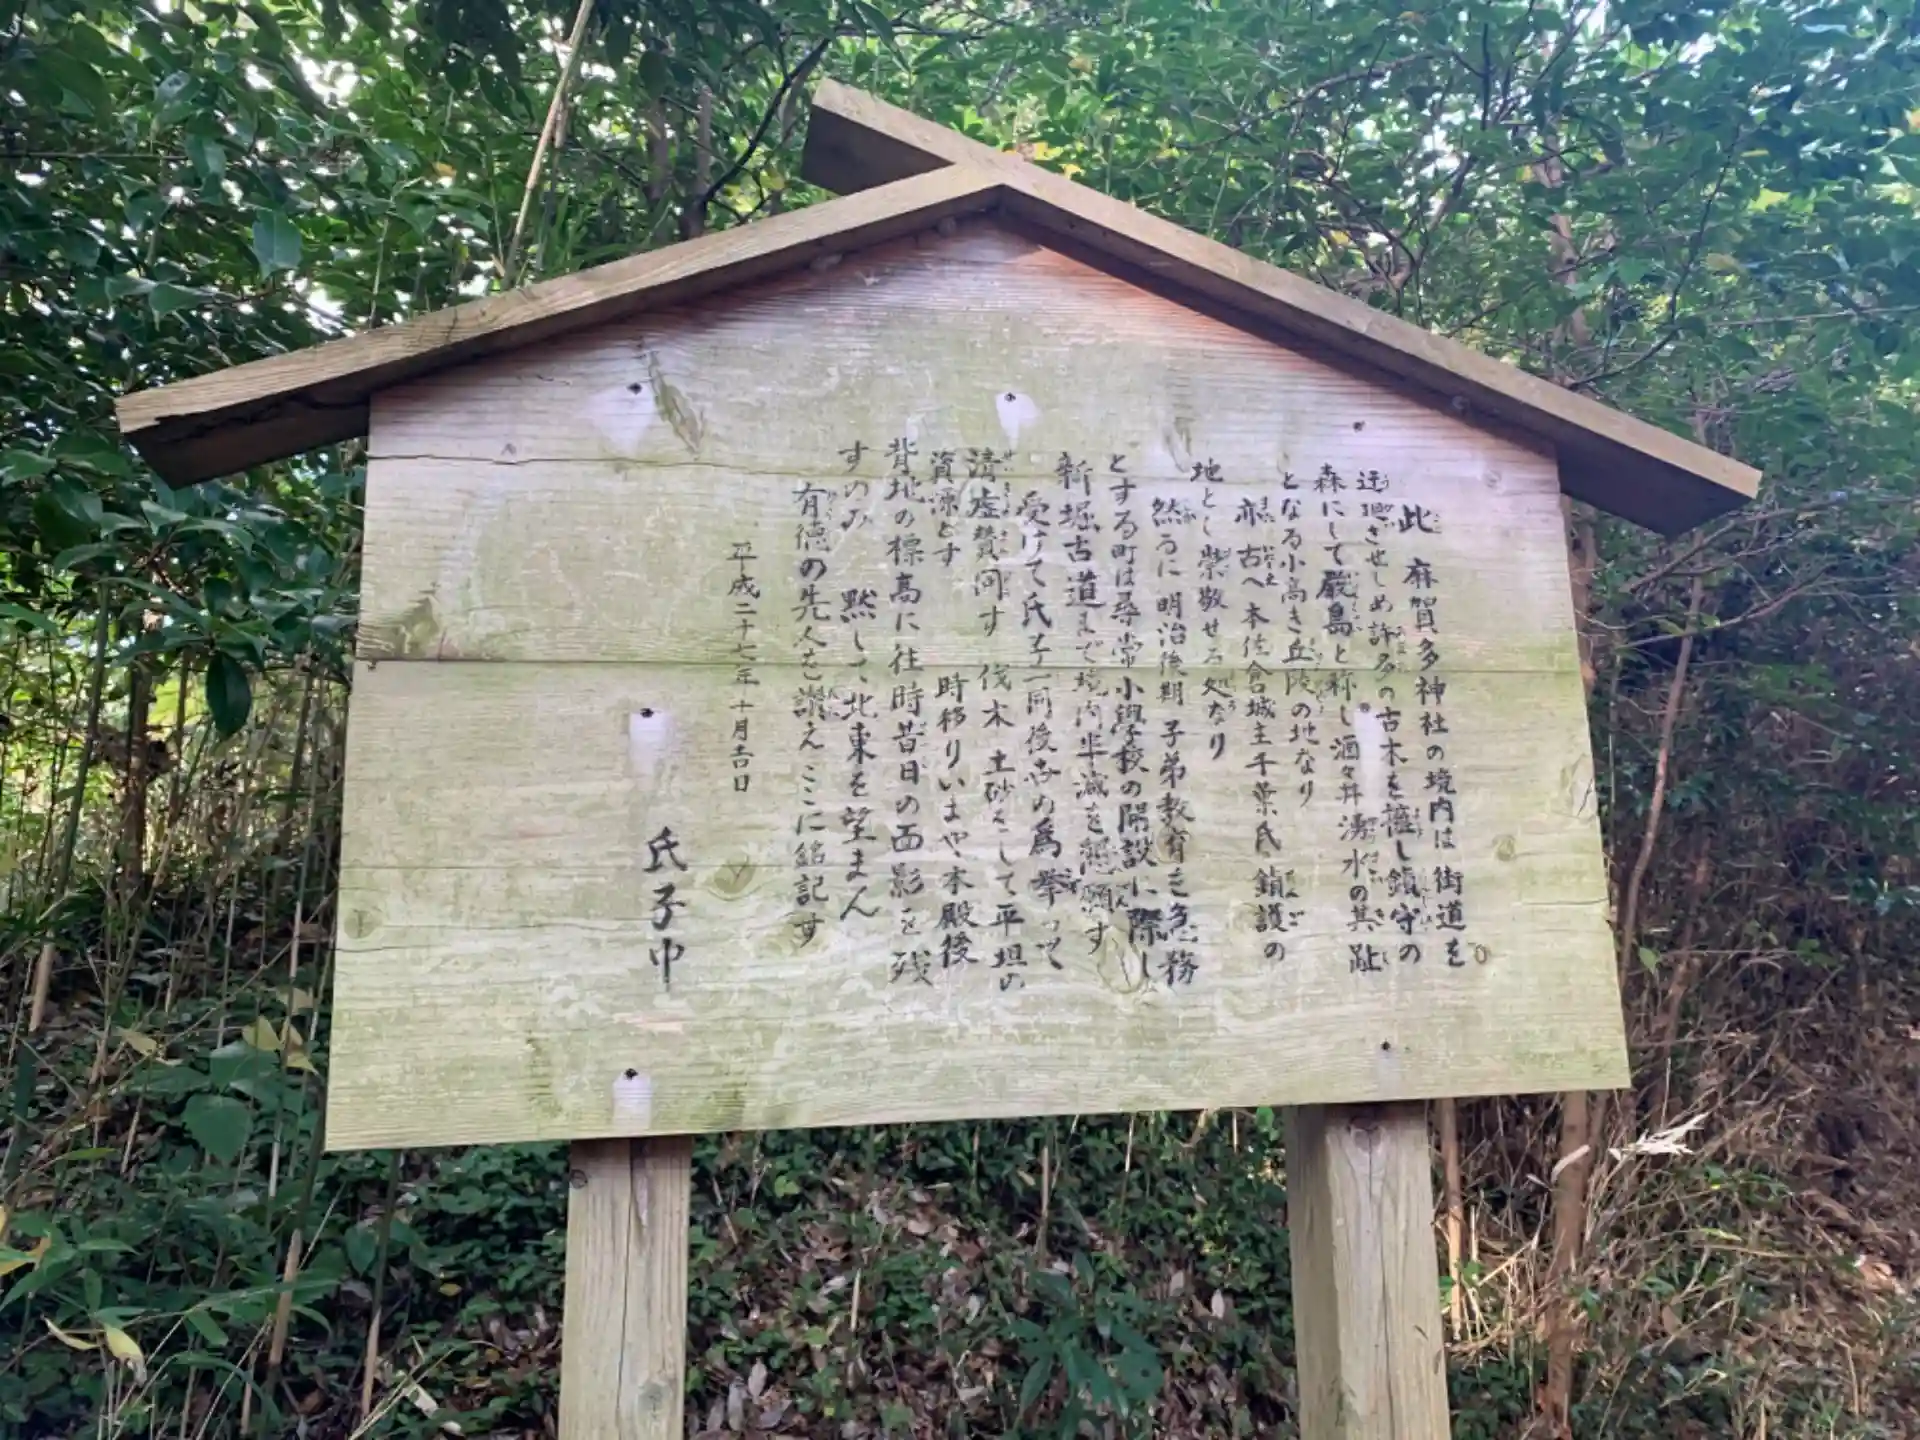 此 麻賀多神社の境内は 街道を
迂廻させしめ許多の古木を擁し鎮守の
森にして厳島と称し酒々井湧水の其趾
となる小高き丘陵の地なり
亦 古へ本佐倉城主千葉氏 鎮護の
地とし崇敬せる処なり
然るに明治後期 子弟教育を急務
とする町は尋常小學校の開設に際し
新堀古道まで境内半減を懇願す
受けて氏子一同後世の為挙って
清虚賛同す 伐木 土砂をして平坦の
資源とす 時移りいまや本殿後
背地の標高に往時昔日の面影を残
すのみ 黙して北東を望まん
有徳の先人を讃えここに銘記す
平成二十七年十月吉日
氏子中